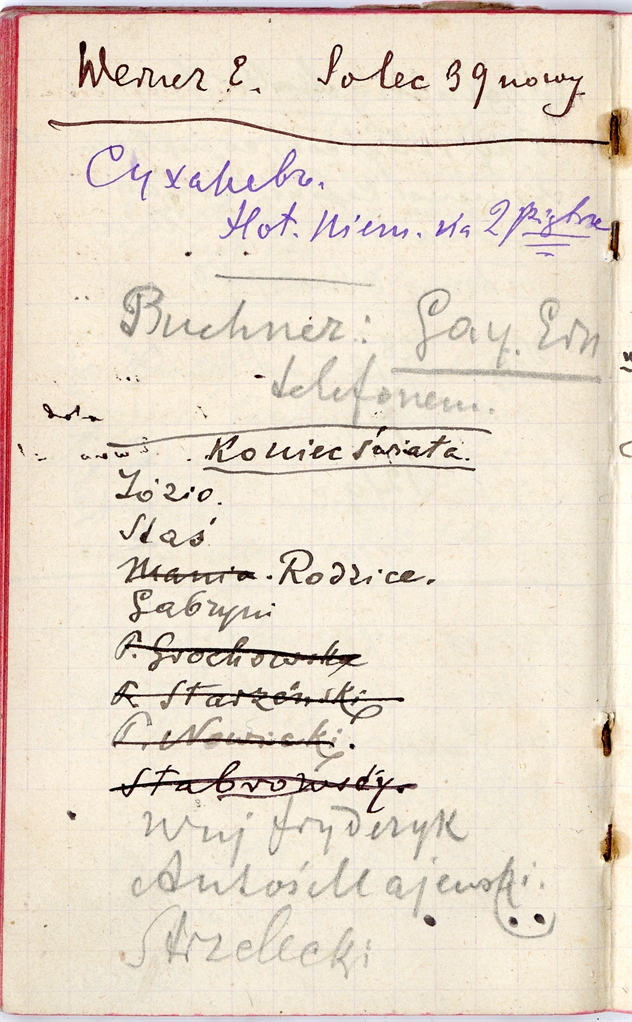 Werner E. Solec 39 nowy
Суханевъ.
Hot. Niem. na 2 piętrze
Buchner: Gay. Edn
telefonem.
Koniec świata.
Józio.
Staś
Mania. Rodzice.
Gabryni
P. Grochowska
P. Starzeński
P. Nowicki.
Stabrowscy.
Wuj Fryderyk
Antoś Majewski.
Strzelecki